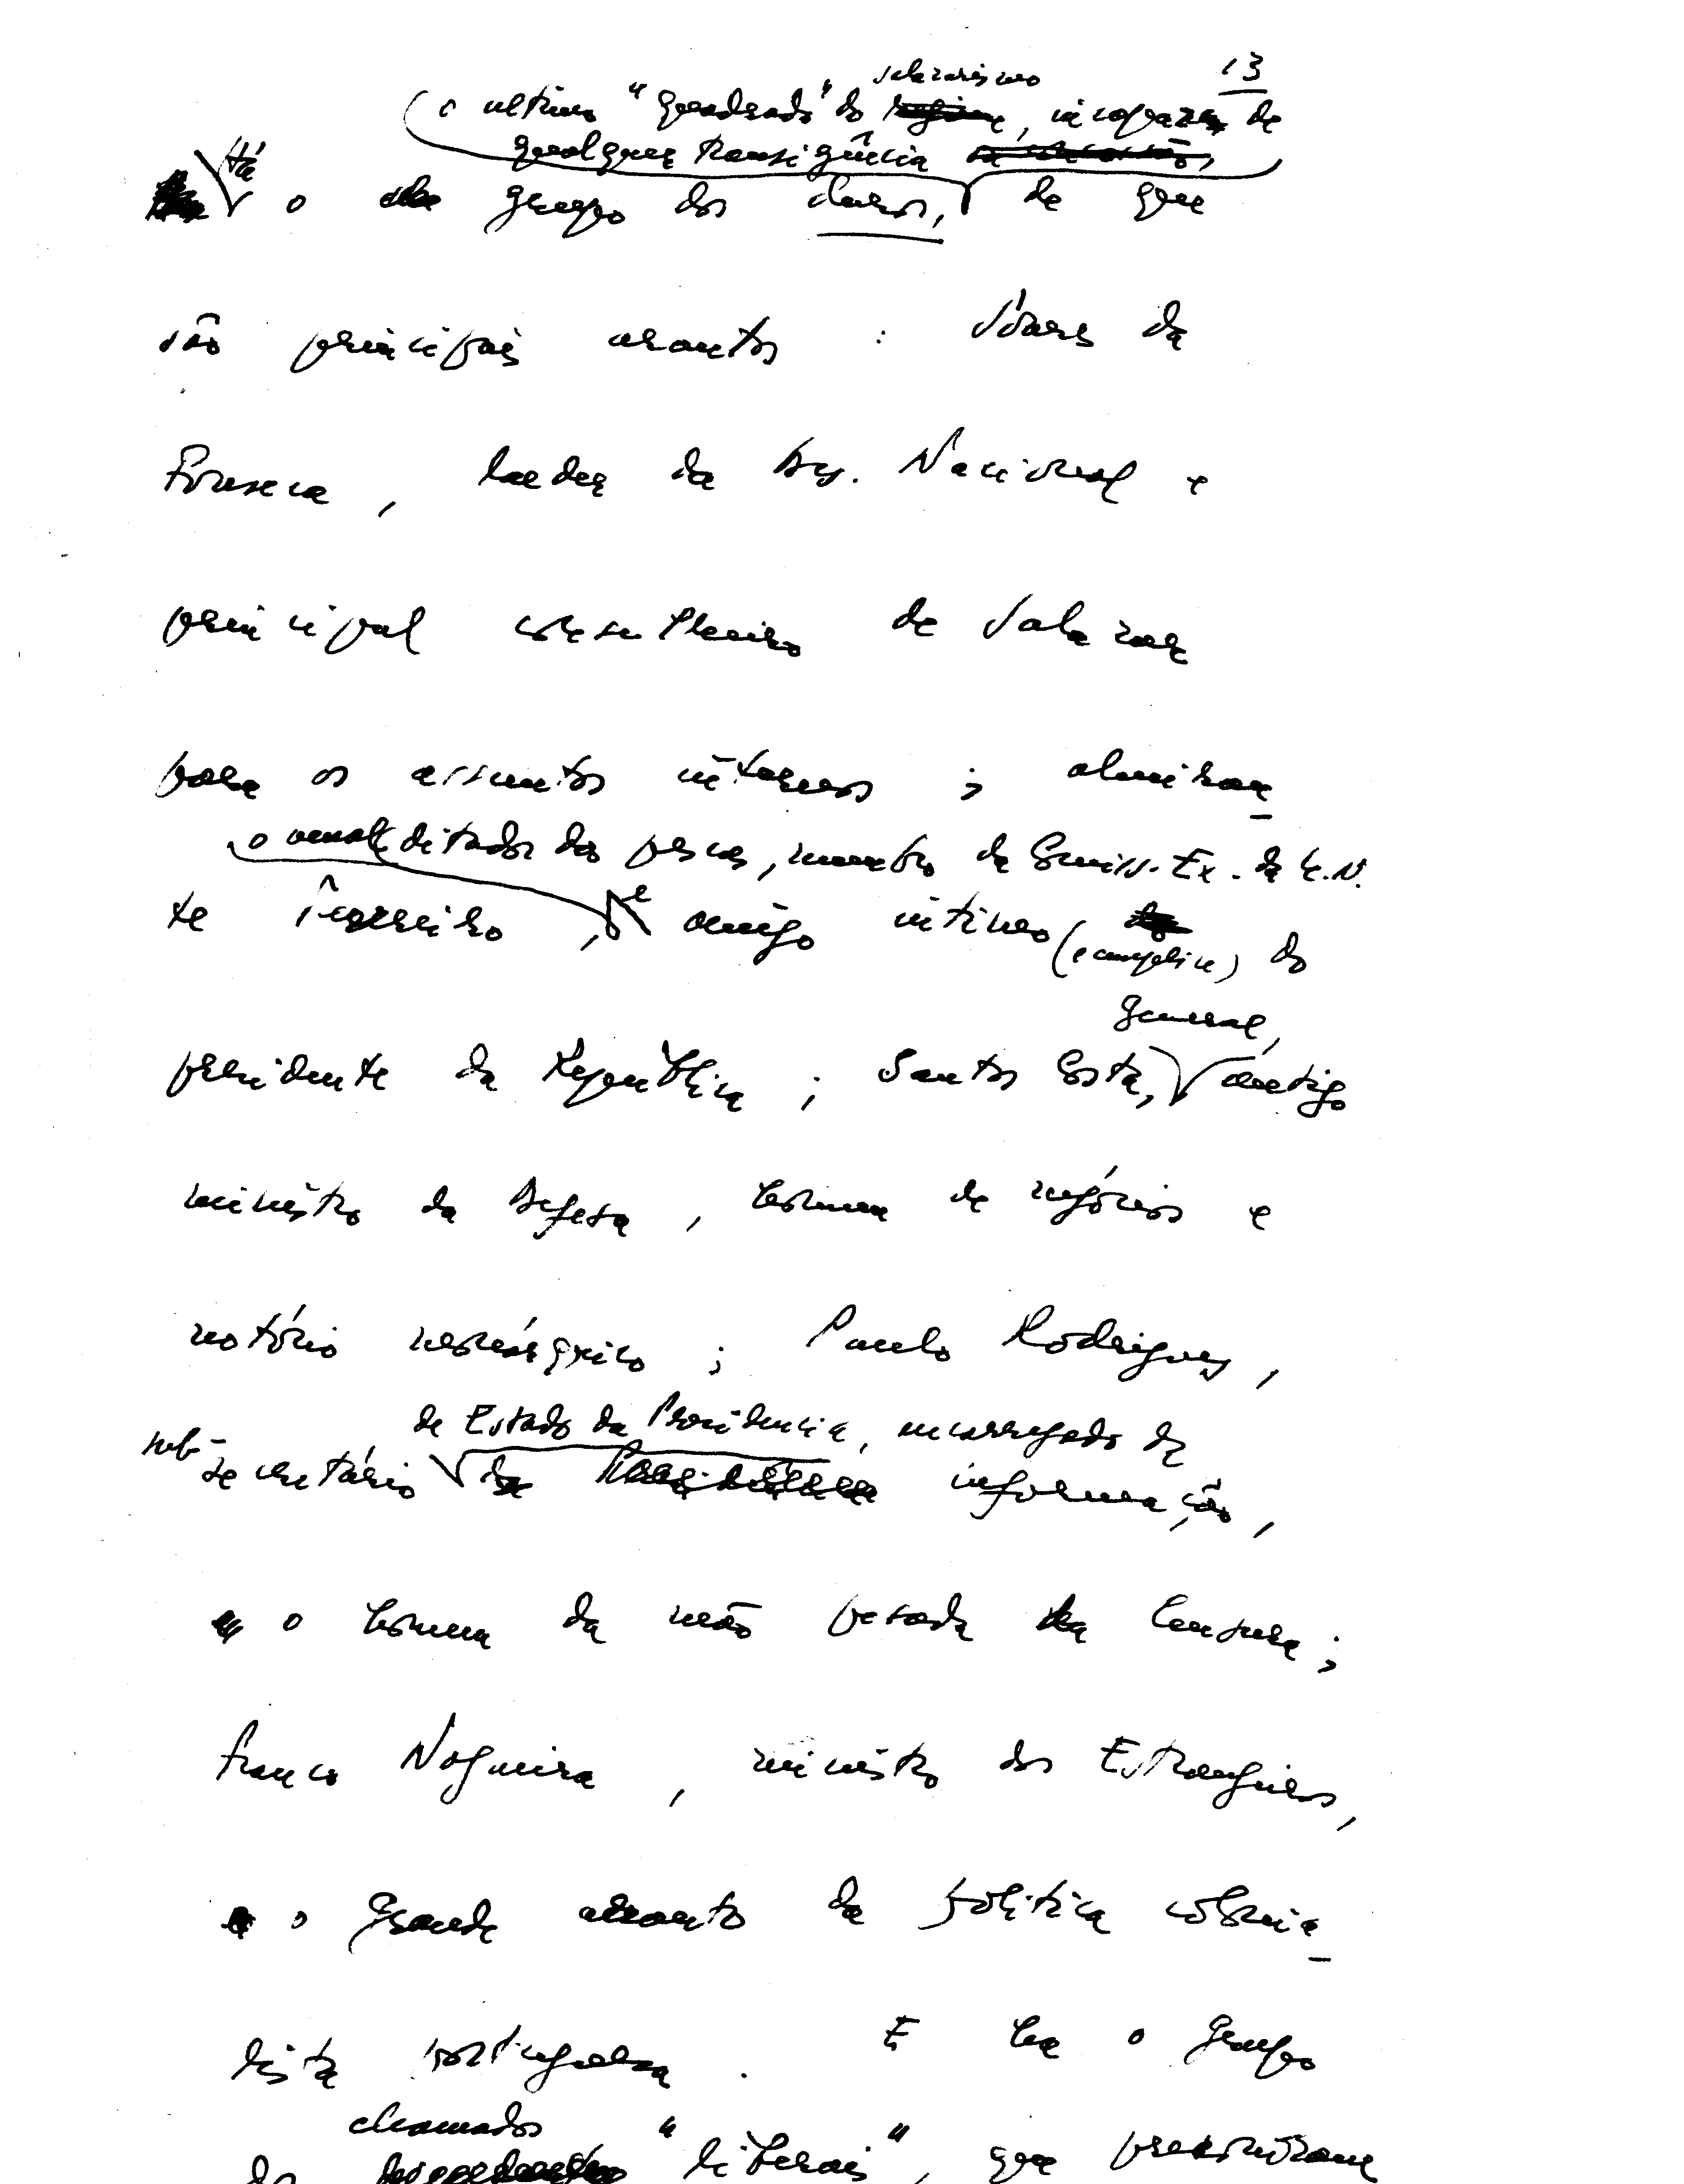 13
salazarismo
o ultimo "quadrado" do regime, incapaz de
qualquer transigência
Há o grupo dos duros, de que
são principais arautos : Soares da
Fonseca, leader da Ass. Nacional e
principal conselheiro de Salazar
para os assuntos internos ; almiran-
o ditador das pescas, membro da Comiss. Ex. da U.N.
te Tenreiro, e amigo intimo (e cumplice) do
general,
presidente da Republica ; Santos Costa, antigo
ministro da Defesa, homem de negócios e
notório monárquico ; Paulo Rodrigues,
de Estado da Presidencia, encarregado da
sub-secretário da informação,
o homem da mão pesada da Censura ;
Franco Nogueira, ministro dos Estrangeiros,
o grande arauto da politica colonia-
lista portuguesa. E ha o grupo
chamados
do "liberais", que preconizam